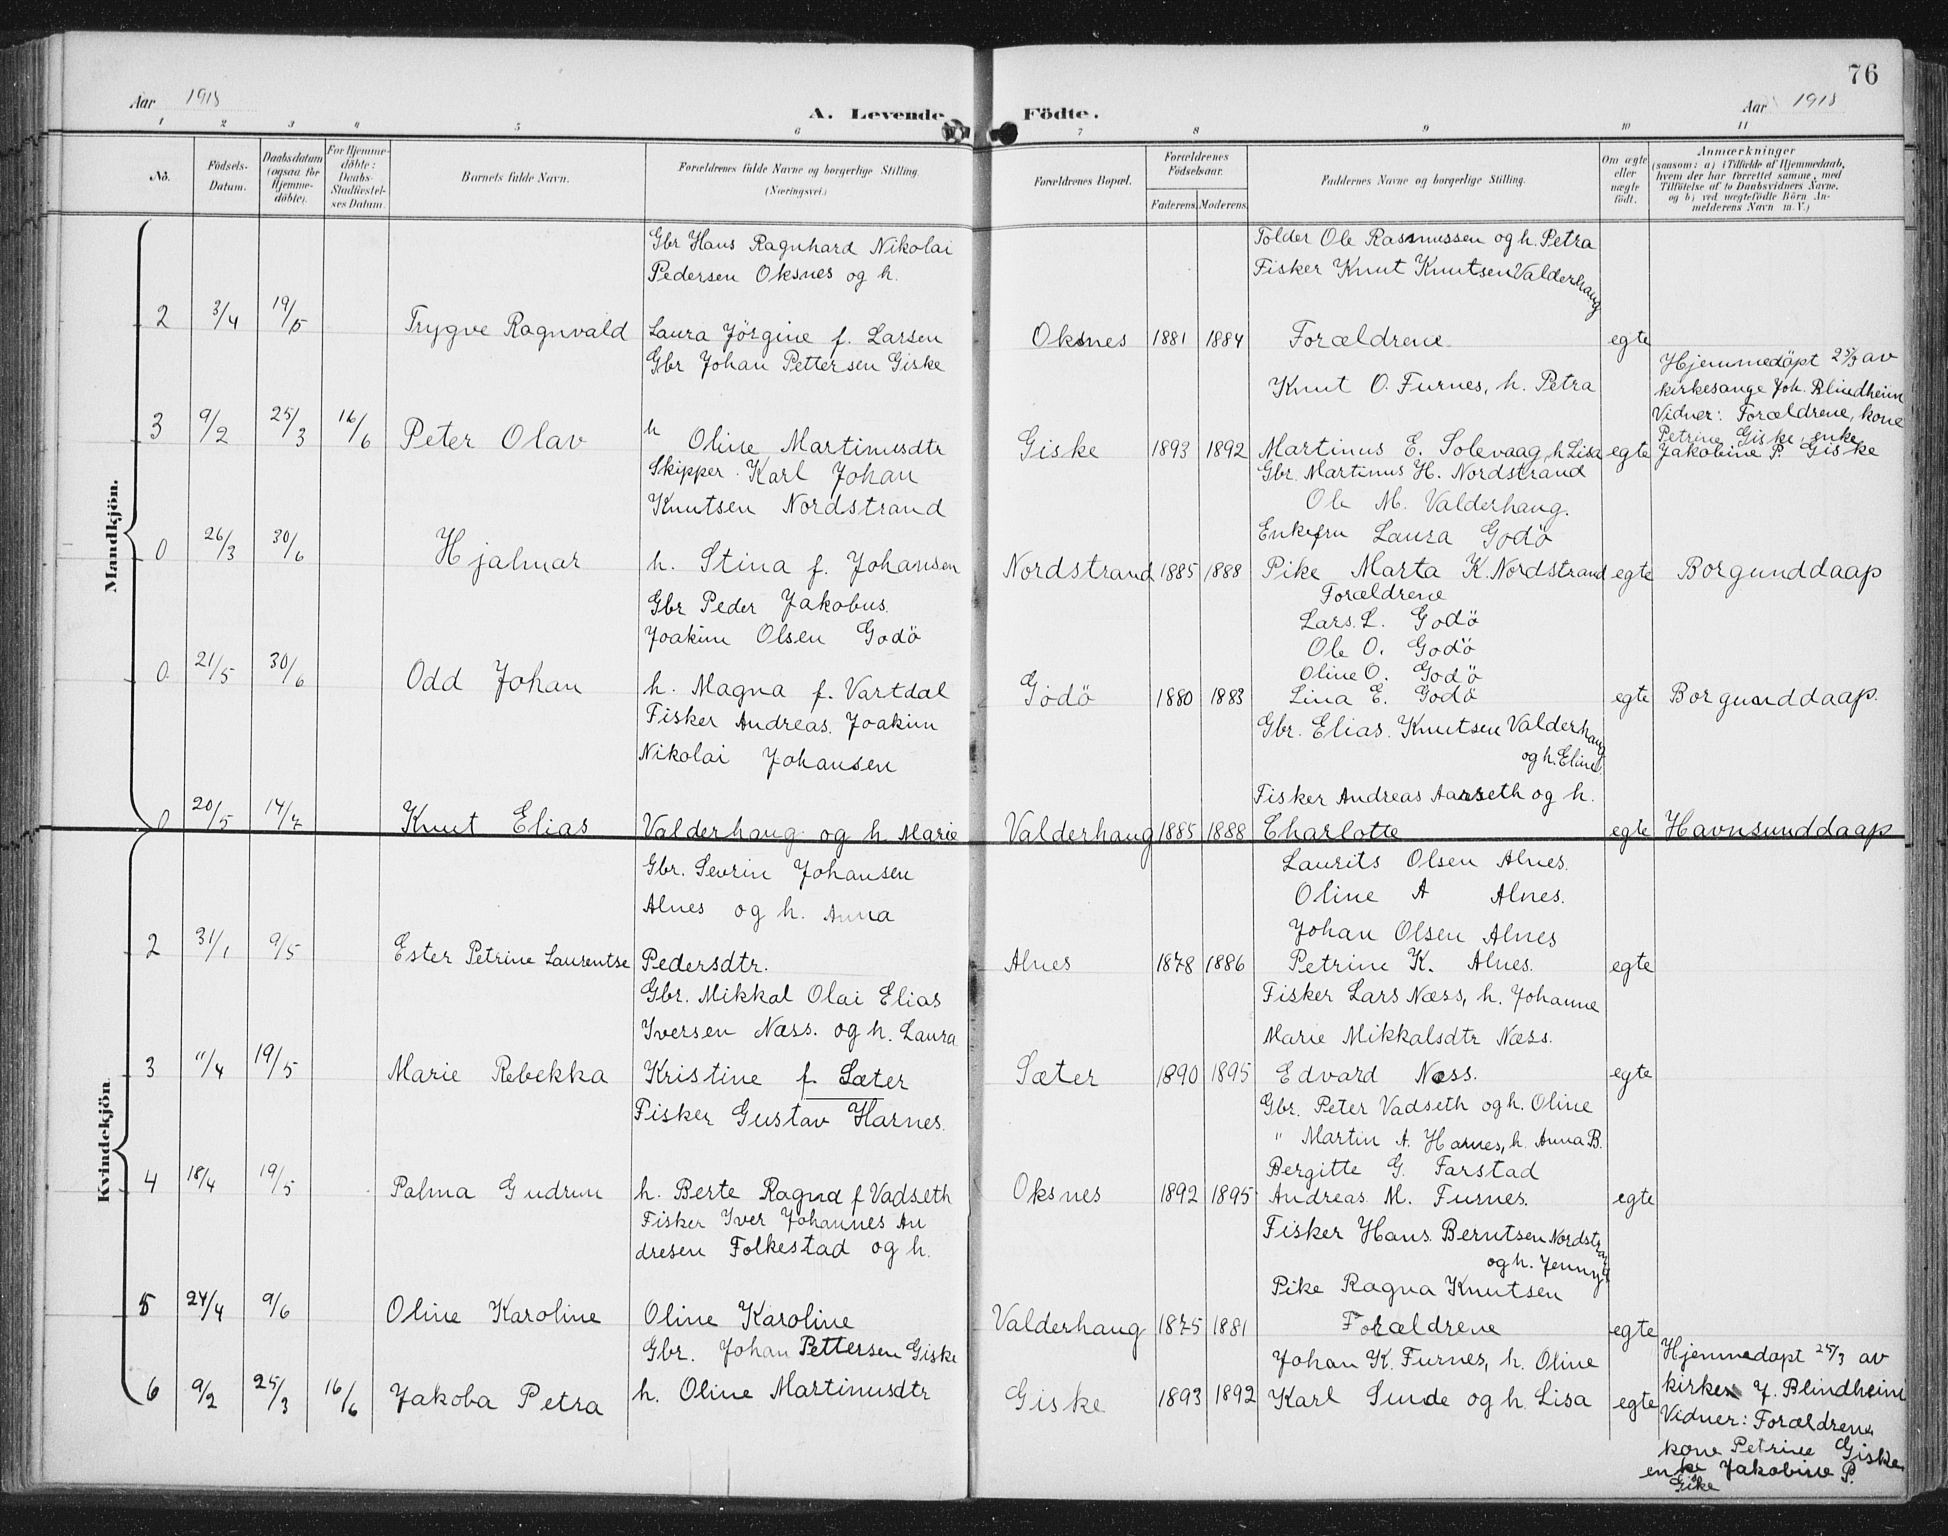 76
Aar 1918
A. Levende Födte.
Aar 1918
1 2 3 4 5 6 7 8 9 10 11
No.
Födsels-
Datum.
Daabsdatum
(ogsaa for
Hjemme-
döbte).
For Hjemme-
döbte:
Daabs-
Stadfæstel-
ses Datum.
Barnets fulde Navn.
Forældrenes fulde Navne og borgerlige Stilling
(Næringsvei.)
Forældrenes Bopæl.
Forældrenes
Födselsaar.
Faderens. Moderens.
Faddernes Navne og borgerlige Stilling.
Om ægte
eller
uægte
födt.
Anmærkninger
(saasom: a) i Tilfælde af Hjemmedaab,
hvem der har forrettet samme, med
Tilföielse af to Daabsvidners Navne.
og b) ved uægtefödte Börn An-
melderens Navn m. V.)
Mandkjön.
Gbr Hans Ragnhard Nikolai
Pedersen Oksnes og h.
2 3/4 19/5 Trygve Ragnvald Laura Jörgine f. Larsen
Oksnes 1881 1884
Tolder Ole Rasmussen og h. Petra
Fisker Knut Knutsen Valderhaug
Forældrene egte
Gbr Johan Pettersen Giske
3 9/2 25/3 16/6 Peter Olav h Oline Martinusdtr
Giske 1893 1892
Knut O. Furnes, h. Petra
Martinus E. Solevaag, h Lisa egte
Hjemmedöpt 25/3 av
kirkesange Joh. Blindheim
Vidner: Forældrene, kone
Petrine Giske, enke
Jakobine P. Giske
Skipper Karl Johan
Knutsen Nordstrand
0 26/3 30/6 Hjalmar h. Stina f. Johansen
Nordstrand 1885 1888
Gbr. Martinus H. Nordstrand
Ole M. Valderhaug.
Enkefru Laura Godö
Pike Marta K. Nordstrand egte Borgunddaap
Gbr Peder Jakobus
Joakim Olsen Godö
0 21/5 30/6 Odd Johan h. Magna f. Vartdal
Godö 1880 1883
Forældrene
Lars. L. Godö
Ole O. Godö
Oline O. Godö
Lina E. Godö egte Borgunddaap.
Fisker Andreas Joakim
Nikolai Johansen
0 20/5 14/7 Knut Elias Valderhaug og h. Marie
Valderhaug 1885 1888
Gbr. Elias Knutsen Valderhaug
og h. Eline
Fisker Andreas Aarseth og h.
Charlotte egte Havnsunddaap
Kvindekjön.
Gbr. Sevrin Johansen
Alnes og h. Anna
2 31/1 9/5 Ester Petrine Laurentse Pedersdtr.
Alnes 1878 1886
Laurits Olsen Alnes.
Oline A Alnes.
Johan Olsen Alnes
Petrine K. Alnes. egte
Gbr. Mikkal Olai Elias
Iversen Næss. og h. Laura
3 11/4 19/5 Marie Rebekka Kristine f. Sæter
Sæter 1890 1895
Fisker Lars Næss, h. Johanne
Marie Mikkalsdtr Næss.
Edvard Næss. egte
Fisker Gustav Harnes.
4 18/4 19/5 Palma Gudrun h. Berte Ragna f Vadseth
Oksnes 1892 1895
Gbr. Peter Vadseth og h. Oline
" Martin A. Harnes, h. Anna B.
Bergitte G. Farstad
Andreas M. Furnes. egte
Fisker Iver Johannes An
dresen Folkestad og h.
5 24/4 9/6 Oline Karoline Oline Karoline
Valderhaug 1875 1881
Fisker Hans Berntsen Nordstrand
og h. Jenny
Pike Ragna Knutsen
Forældrene egte
Gbr. Johan Pettersen Giske
6 9/2 25/3 16/6 Jakoba Petra h. Oline Martinusdtr
Giske 1893 1892
Johan K. Furnes, h. Oline
Karl Sunde og h. Lisa egte
Hjemmedöpt 25/3 av
kirkes J. Blindheim
Vidner: Forældrene
kone Petrine Giske
enke Jakobine P.
Giske